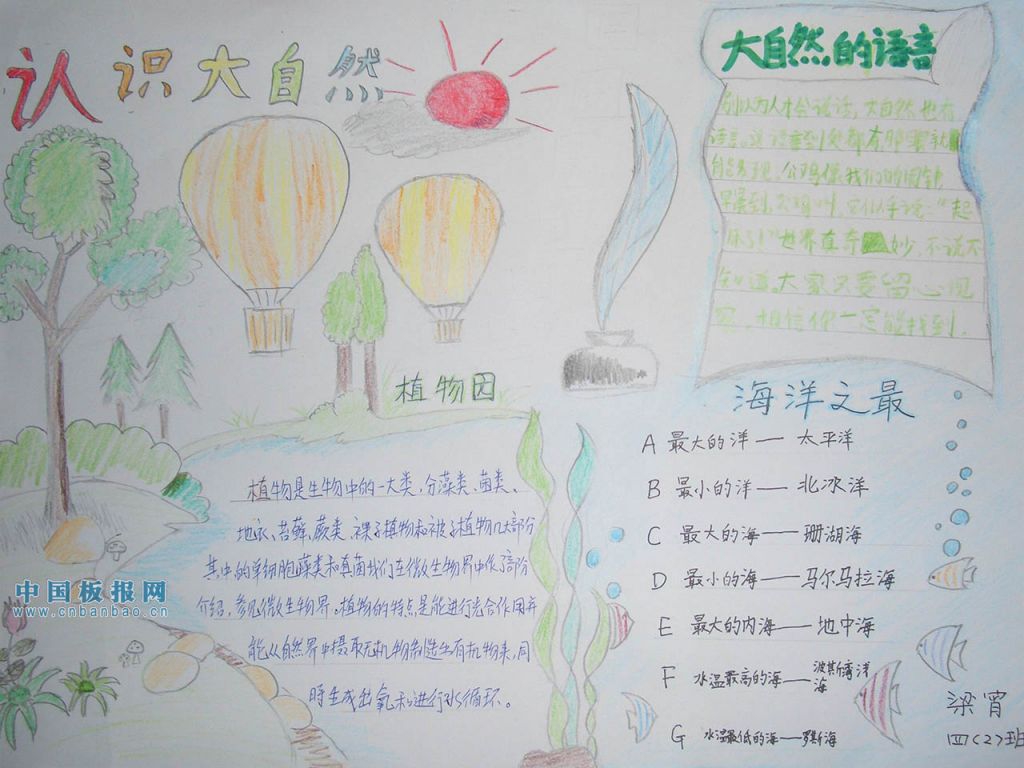 认识大自然
大自然的语言
别以为人才会说话，大自然也有
语言。这语言到处都有
公鸡像我们的闹钟
早晨到，公鸡叫，它似乎说："起
床了！"世界真奇妙，不说不
知道。大家只要留心观
察，相信你一定能找到。
植物园
植物是生物中的一大类，分藻类、菌类、
地衣、苔藓、蕨类、裸子植物和被子植物几大部分
其中的单细胞藻类和真菌我们在微生物界中作了部份
介绍，参见微生物界，植物的特点是能进行光合作用并
能从自然界中摄取无机物制造出有机物来，同
时生成出氧和进行水循环。
海洋之最
A 最大的洋——太平洋
B 最小的洋——北冰洋
C 最大的海——珊湖海
D 最小的海——马尔马拉海
E 最大的内海——地中海
F 水温最高的海——波斯湾洋海
G 水温最低的海——罗斯海
梁宵
四（2）班
中国板报网
www.cnbanbao.cn